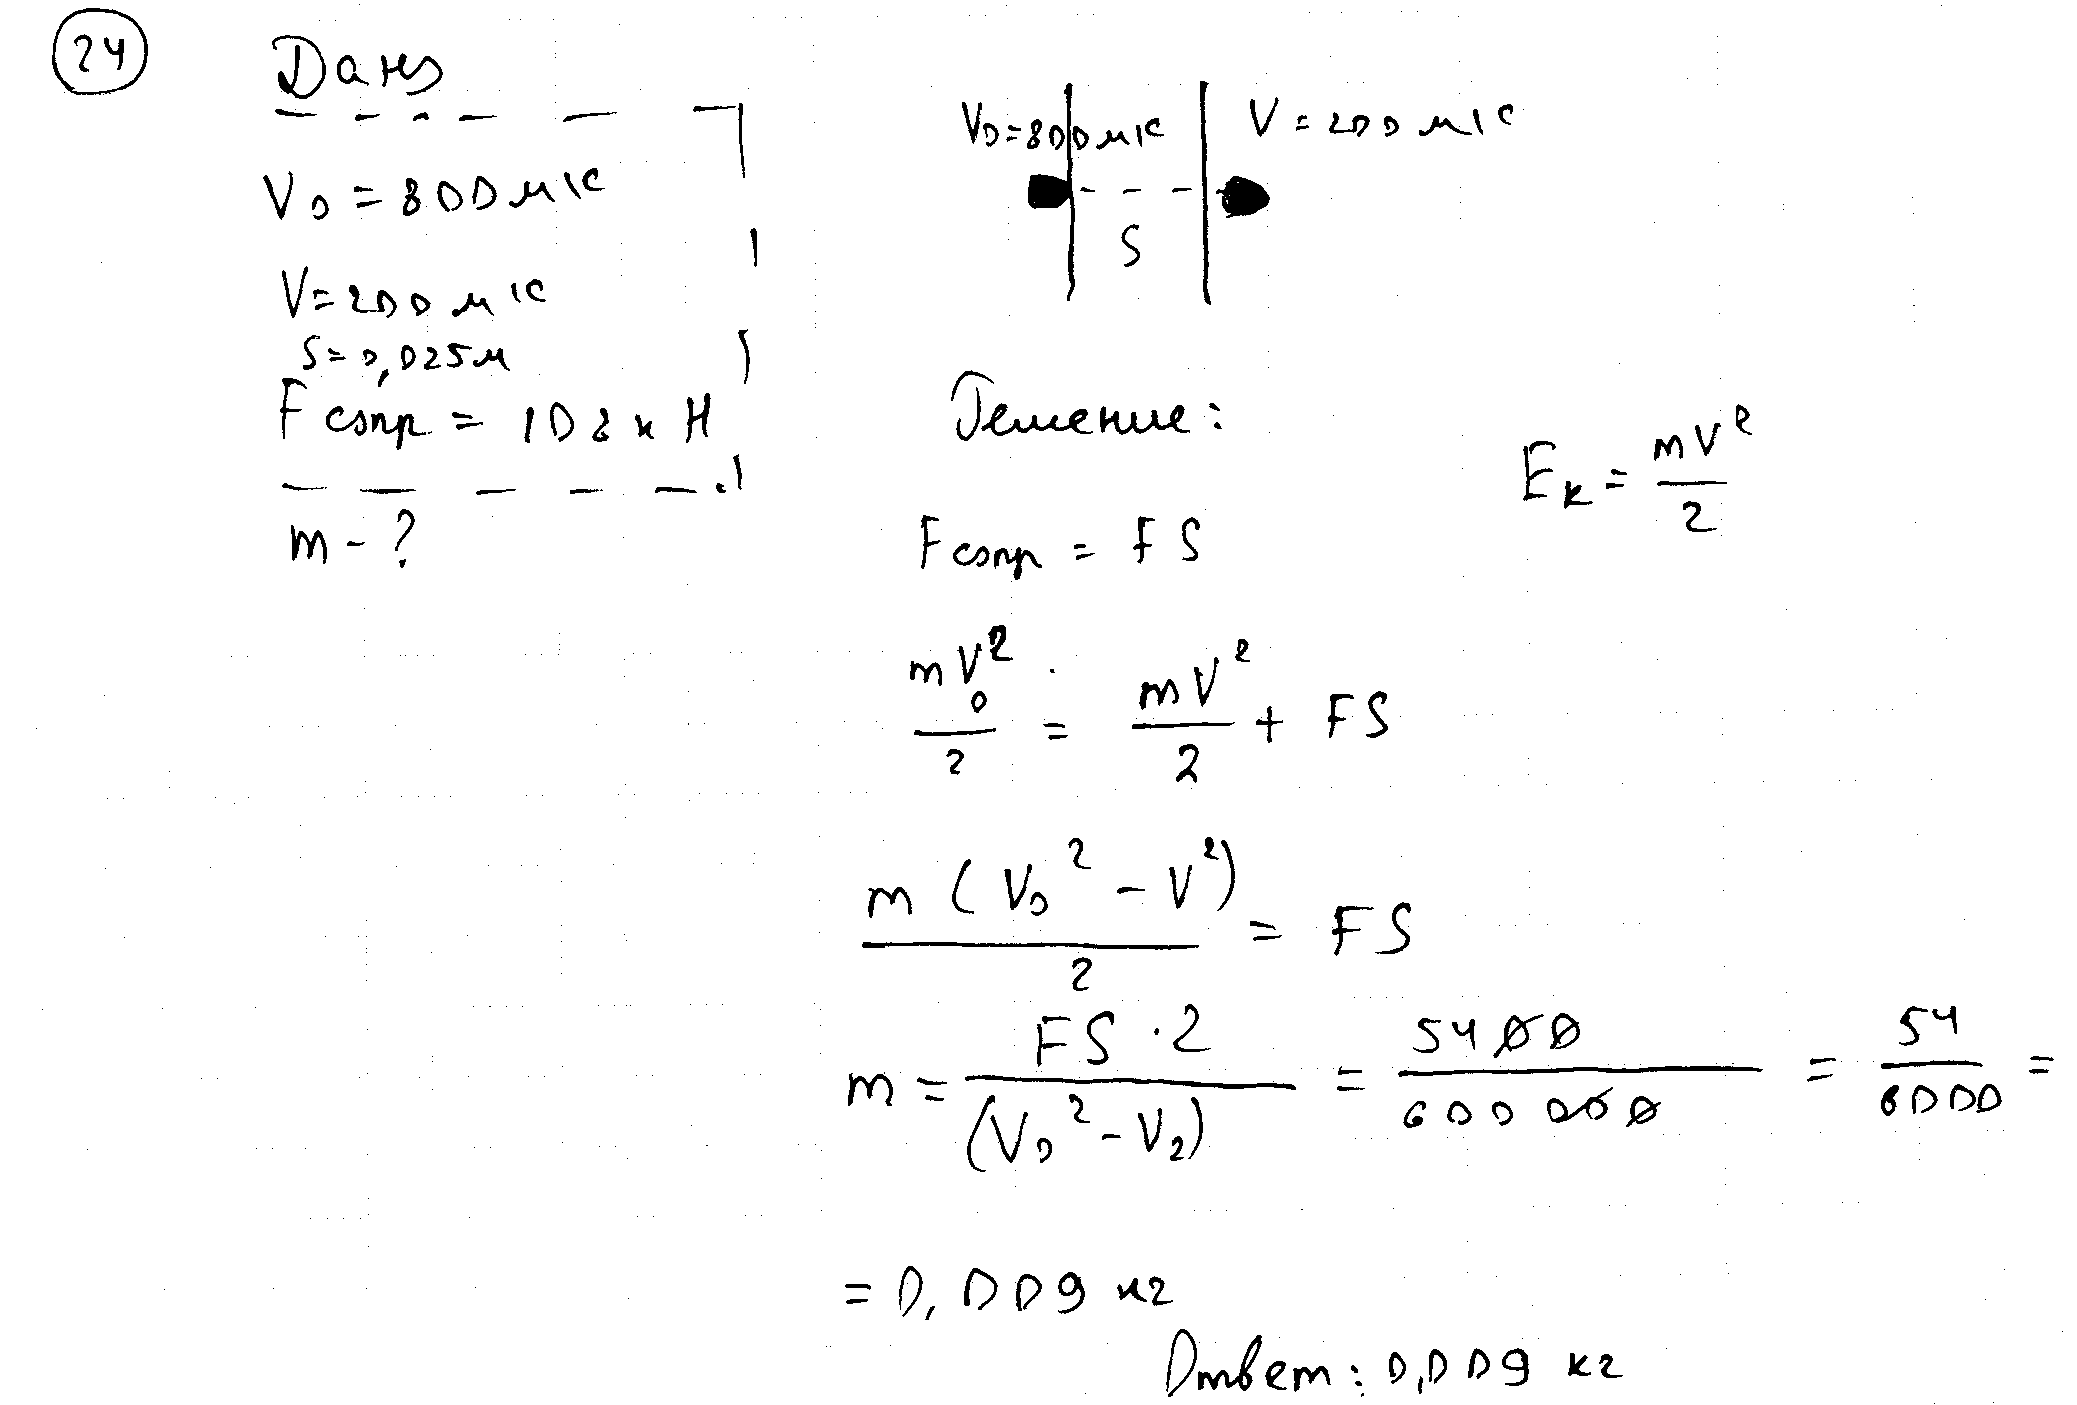 24
Дано
V₀ = 800 м/с
V = 200 м/с
S = 0,025 м
F сопр = 108 к Н
m - ?
V₀ = 800 м/с
V = 200 м/с
S
Решение:
Eк = mV²/2
F сопр = FS
mV₀²/2 = mV²/2 + FS
m(V₀² - V²)/2 = FS
m = FS · 2/(V₀² - V₂) = 5400/600 000 = 54/6000 =
= 0,009 кг
Ответ: 0,009 кг